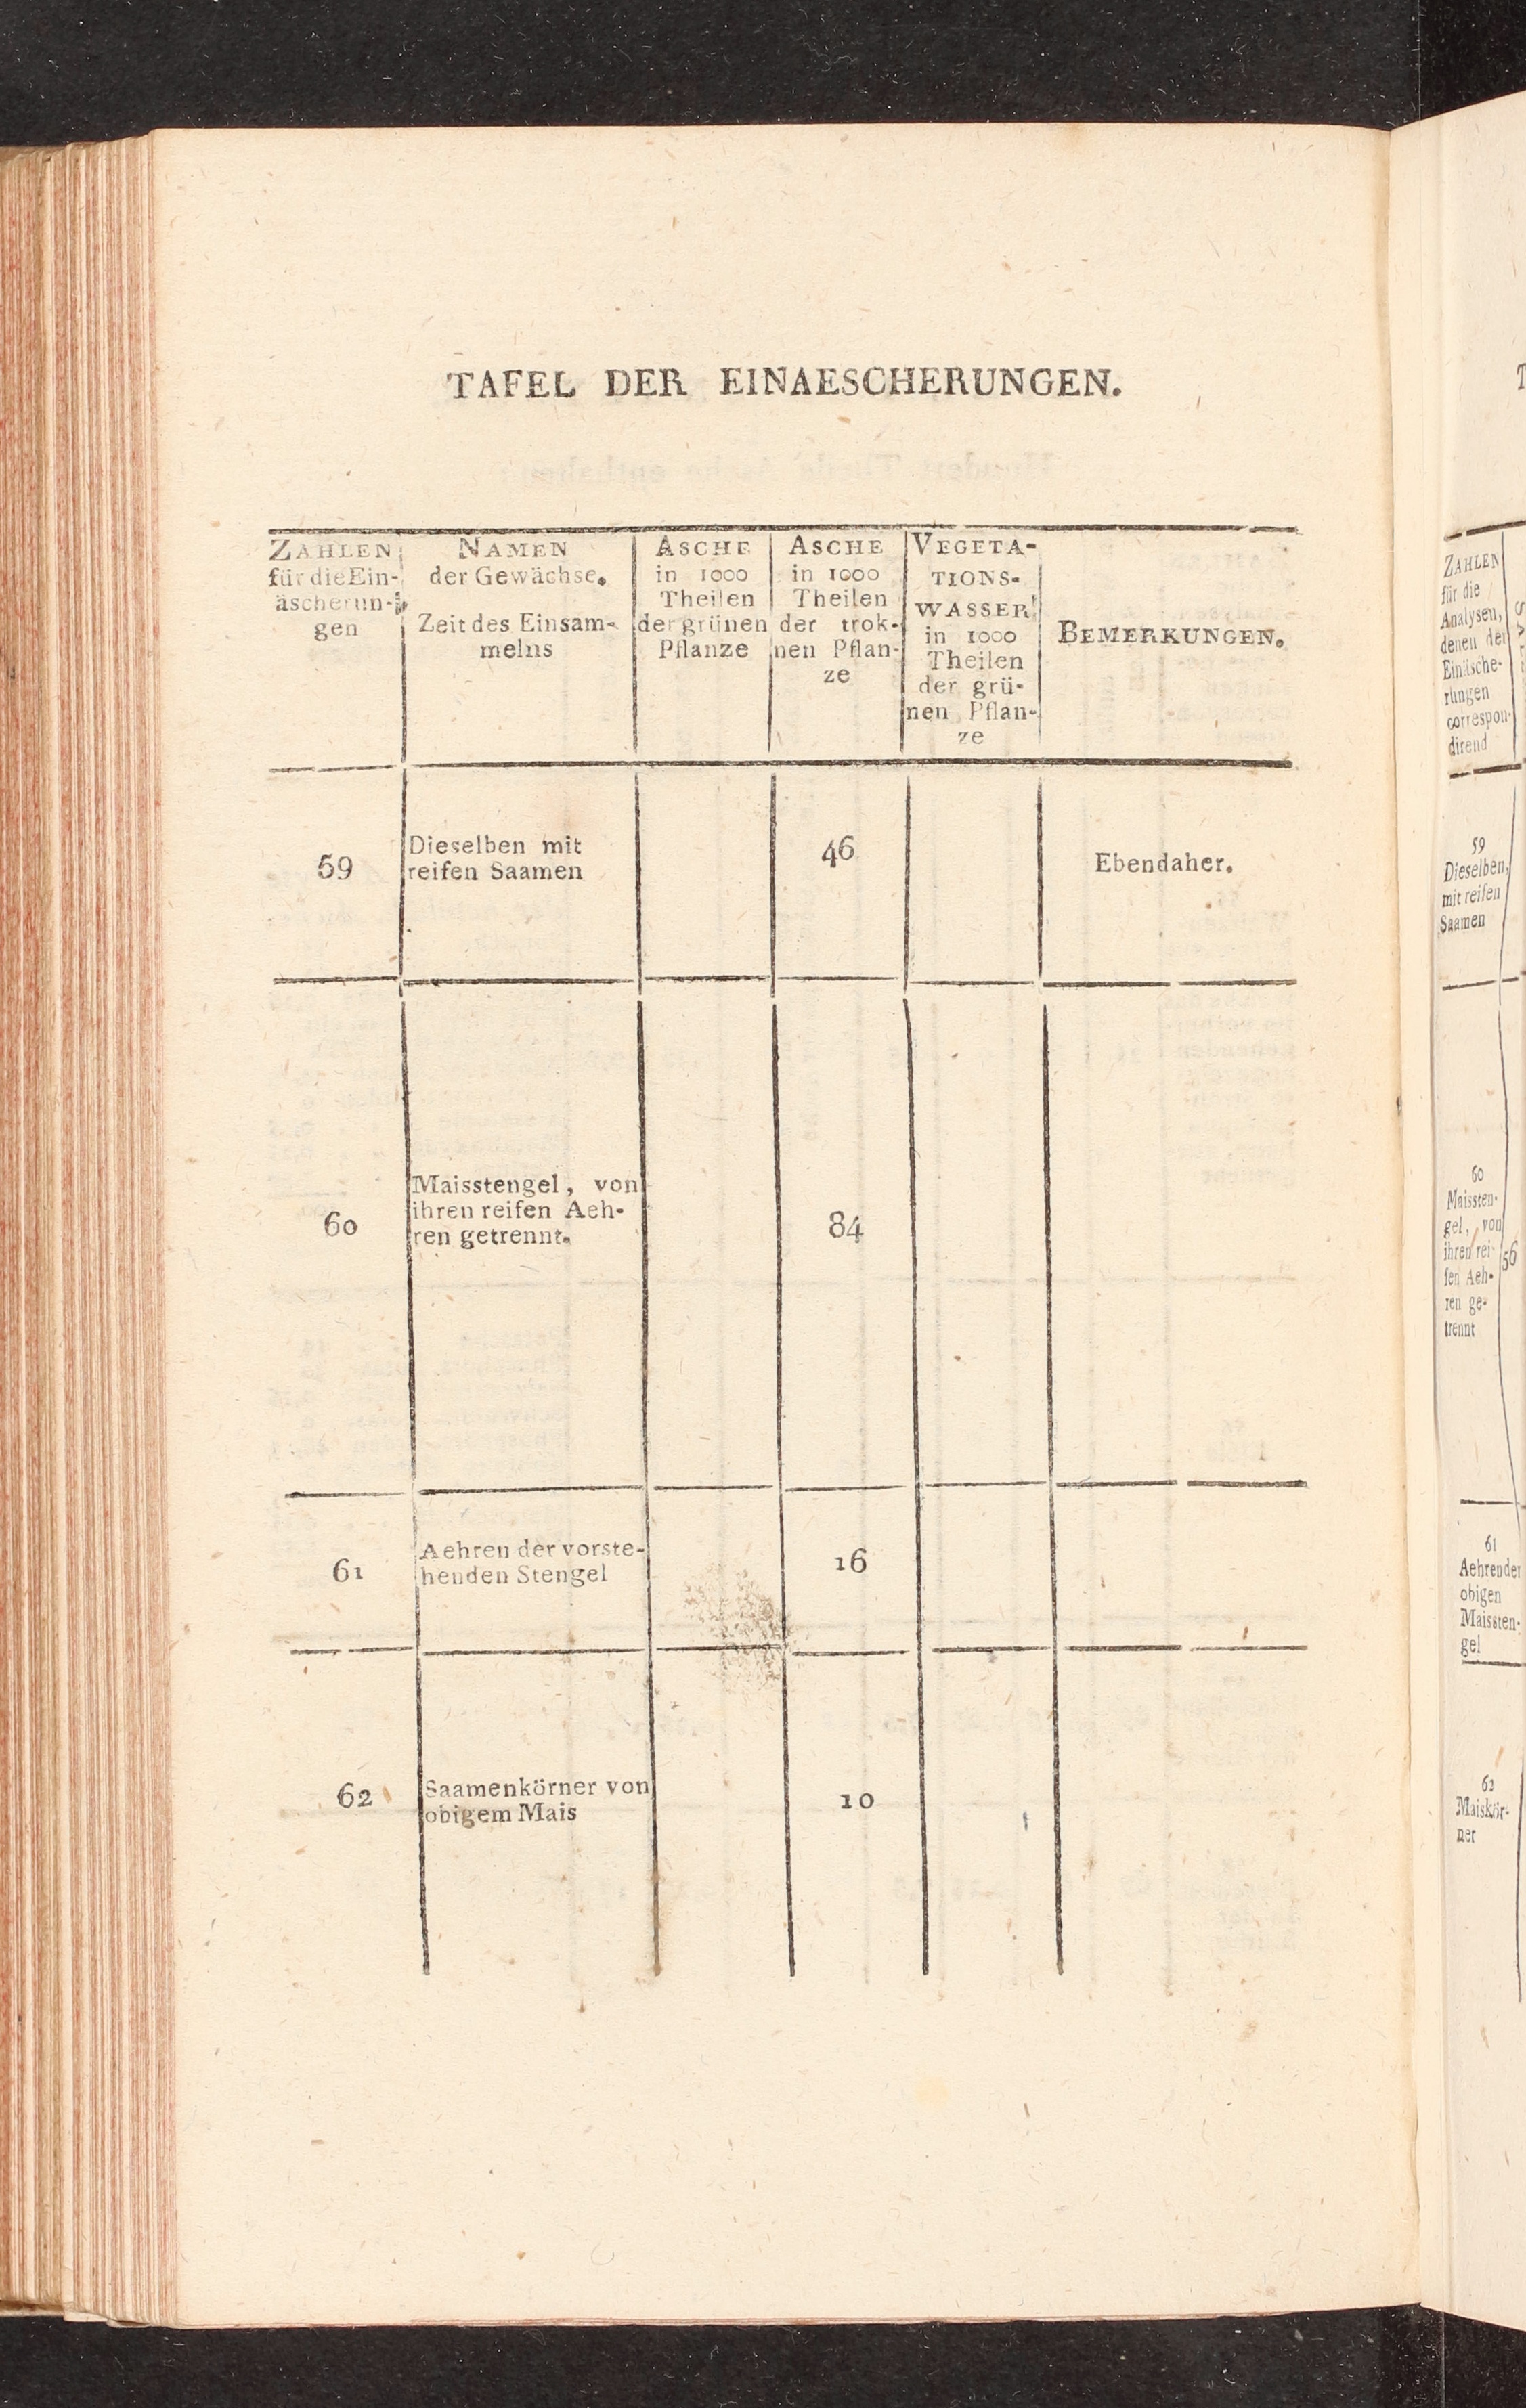 TAFEL DER EINAESCHERUNGEN.
ZAHLEN
für die Ein-
äscherun-
gen
NAMEN
der Gewächse.
Zeit des Einsam-
melns
ASCHE
in 1000
Theilen
der grünen
Pflanze
ASCHE
in 1000
Theilen
der trok-
nen Pflan-
ze
VEGETA-
TIONS-
WASSER
in 1000
Theilen
der grü-
nen Pflan-
ze
BEMERKUNGEN.
59
Dieselben mit
reifen Saamen
46
Ebendaher.
60
Maisstengel, von
ihren reifen Aeh-
ren getrennt.
84
61
Aehren der vorste-
henden Stengel
16
62
Saamenkörner von
obigem Mais
10
ZAHLEN
für die
Analysen,
denen der
Einäsche-
rungen
correspon-
dirend
59
Dieselben,
mit reifen
Saamen
60
Maissten-
gel, von
ihren rei-
fen Aeh-
ren ge-
trennt
56
61
Aehren der
obigen
Maissten-
gel
62
Maiskör-
ner